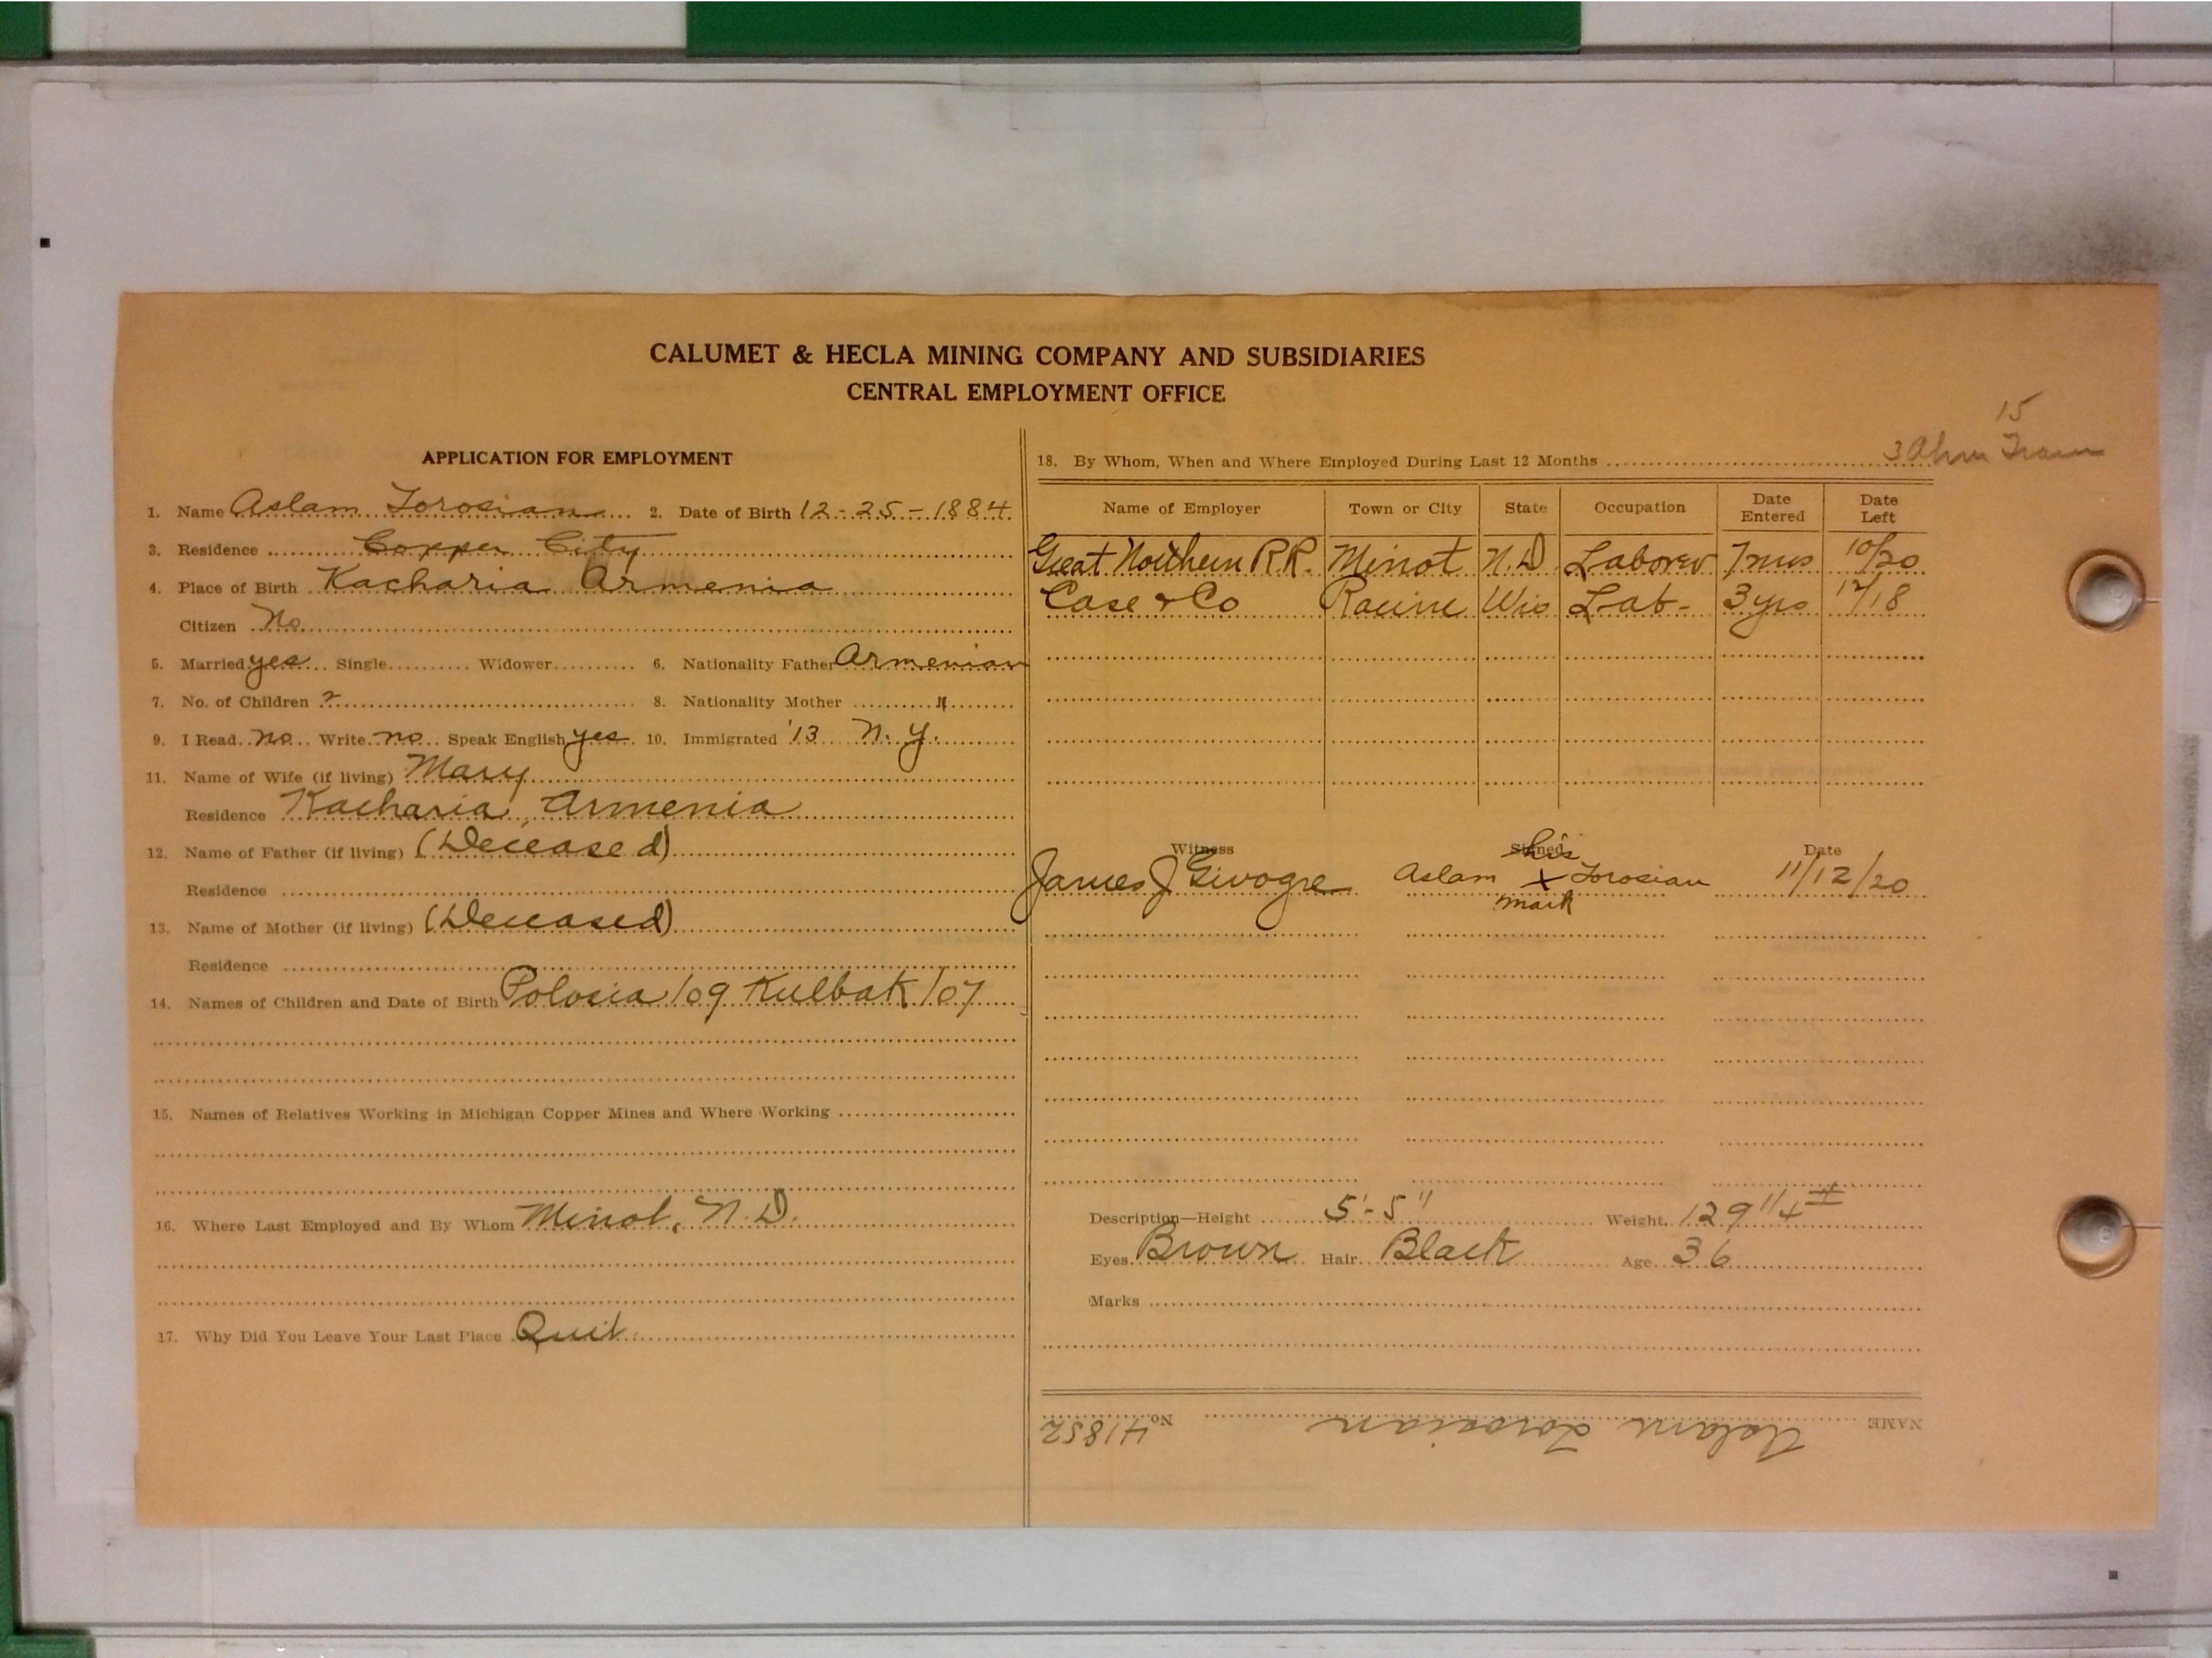 CALUMET & HECLA MINING COMPANY AND SUBSIDIARIES
CENTRAL EMPLOYMENT OFFICE
15
3 Ahm Tram
APPLICATION FOR EMPLOYMENT
1. Name Aslam Torosian 2. Date of Birth 12-25-1884
3. Residence Copper City
4. Place of Birth Kacharia Armenia
Citizen No
5. Married yes Single Widower 6. Nationality Father Armenian
7. No. of Children 2 8. Nationality Mother "
9. I Read no Write no Speak English yes 10. Immigrated '13 N.Y.
11. Name of Wife (if living) Mary
Residence Kacharia, Armenia
12. Name of Father (if living) (Deceased)
Residence
13. Name of Mother (if living) (Deceased)
Residence
14. Names of Children and Date of Birth Polosia /09 Kulbak /07
15. Names of Relatives Working in Michigan Copper Mines and Where Working
16. Where Last Employed and By Whom Minot, N.D.
17. Why Did You Leave Your Last Place Quit
18. By Whom, When and Where Employed During Last 12 Months
Name of Employer Town or City State Occupation Date Entered Date Left
Great Northern R.R. Minot N.D Laborer 7 mos 10/20
Case & Co Racine Wis Lab- 3 yrs 12/18
Witness Signed Date
James J Givogre Aslam his X mark Torosian 11/12/20
Description—Height 5'-5" Weight 129 1/4 #
Eyes Brown Hair Black Age 36
Marks
NAME Aslam Torosian No. 41852